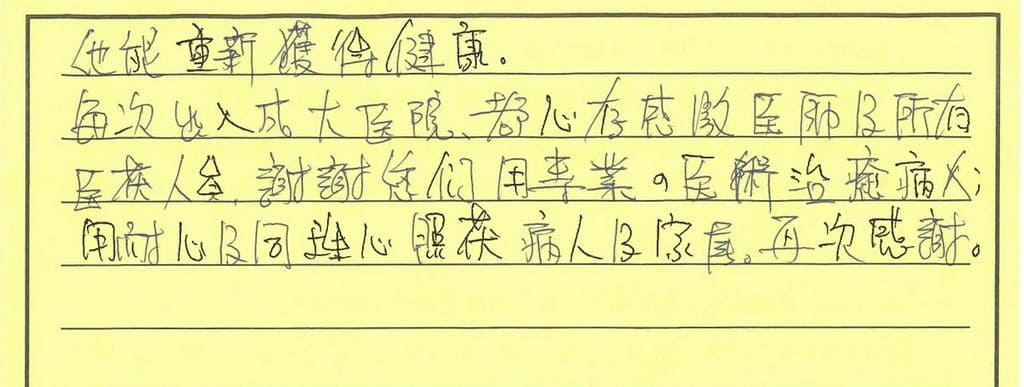 他能重新獲得健康。
每次出入成大医院、都心存感激医师及所有
医护人員,謝謝您们用專業的医術治療病人;
用耐心及同理心照护病人及家属。再次感謝。